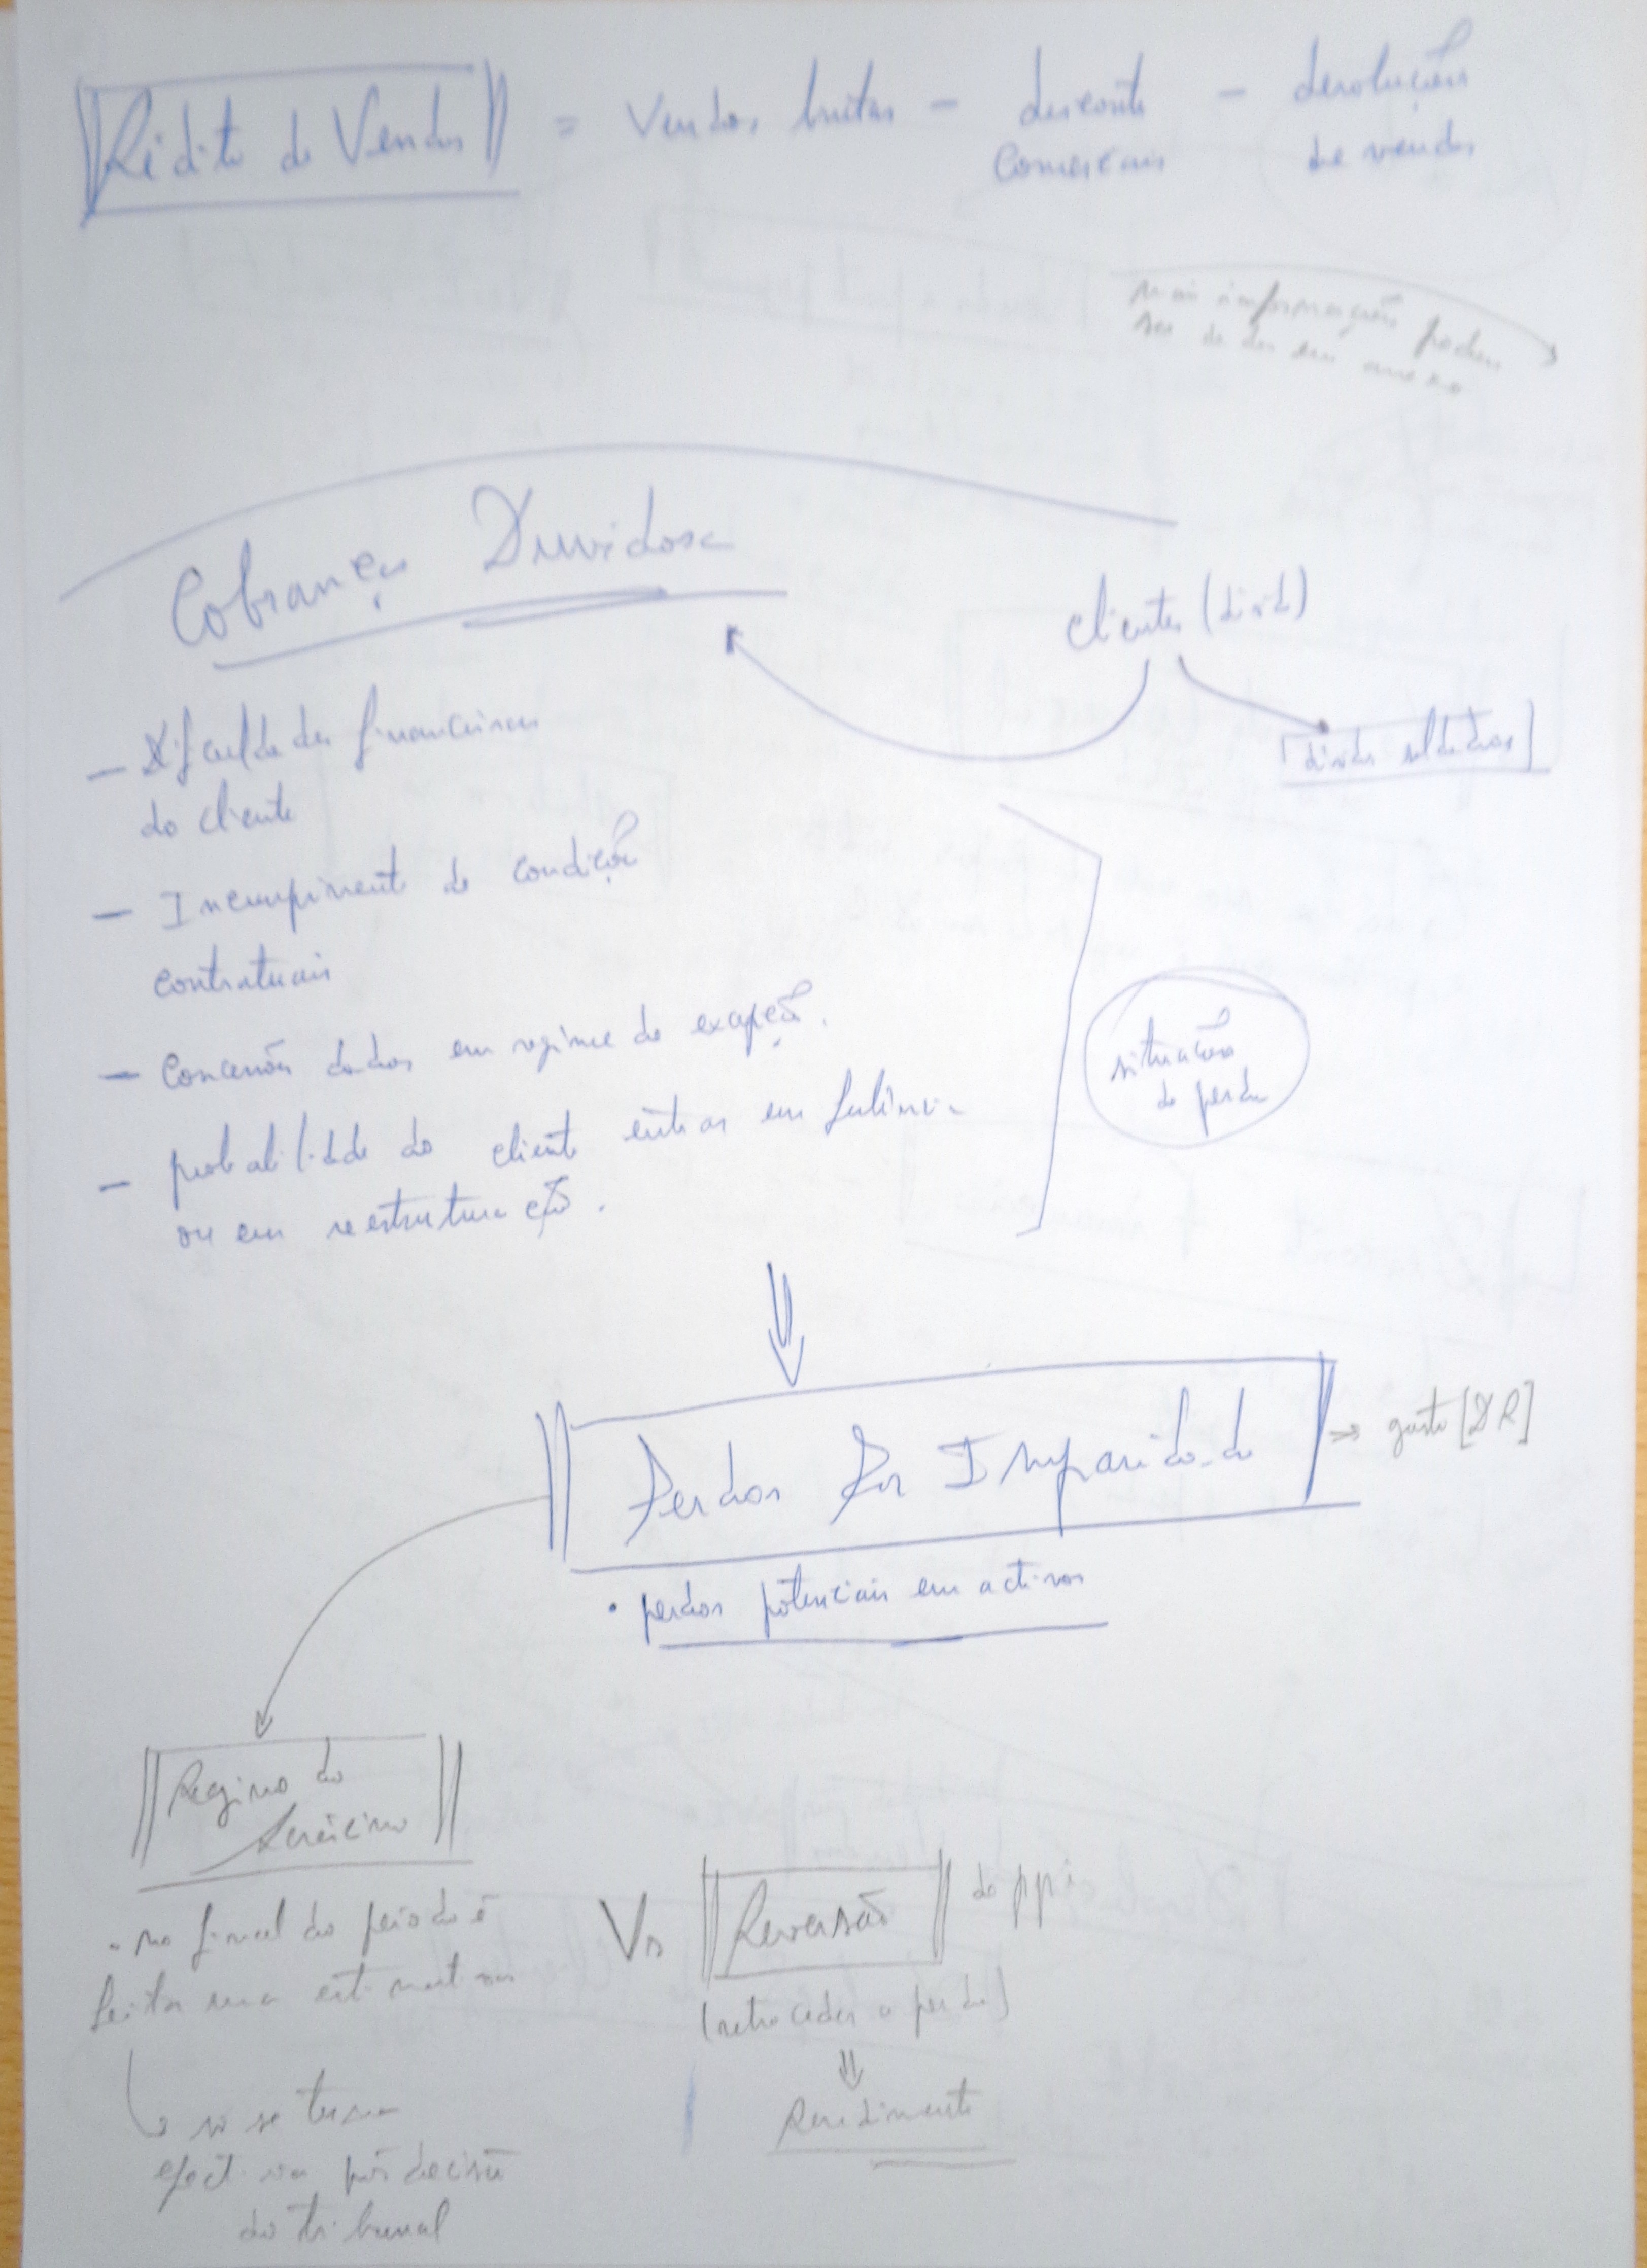 Rédito de Vendas = Vendas brutas - desconto - devoluções
comerciais de vendas
mais informações podem
ser dadas em anexo
Cobrança Duvidosa
clientes (dívid)
dívidas saldadas
- Dificuldades financeiras
do cliente
- Incumprimento de condições
contratuais
- Concessões dadas em regime de exceção.
- probabilidade do cliente entrar em falência
ou em reestruturação.
situações
de perda
Perdas Por Imparidade → gasto [DR]
• perdas potenciais em activos
Regime do
Acréscimo
• no final do período é
feita uma estimativa
só se torna
efectiva pós decisão
do tribunal
Vs Reversão de ppi
(retroceder a perda)
Rendimento